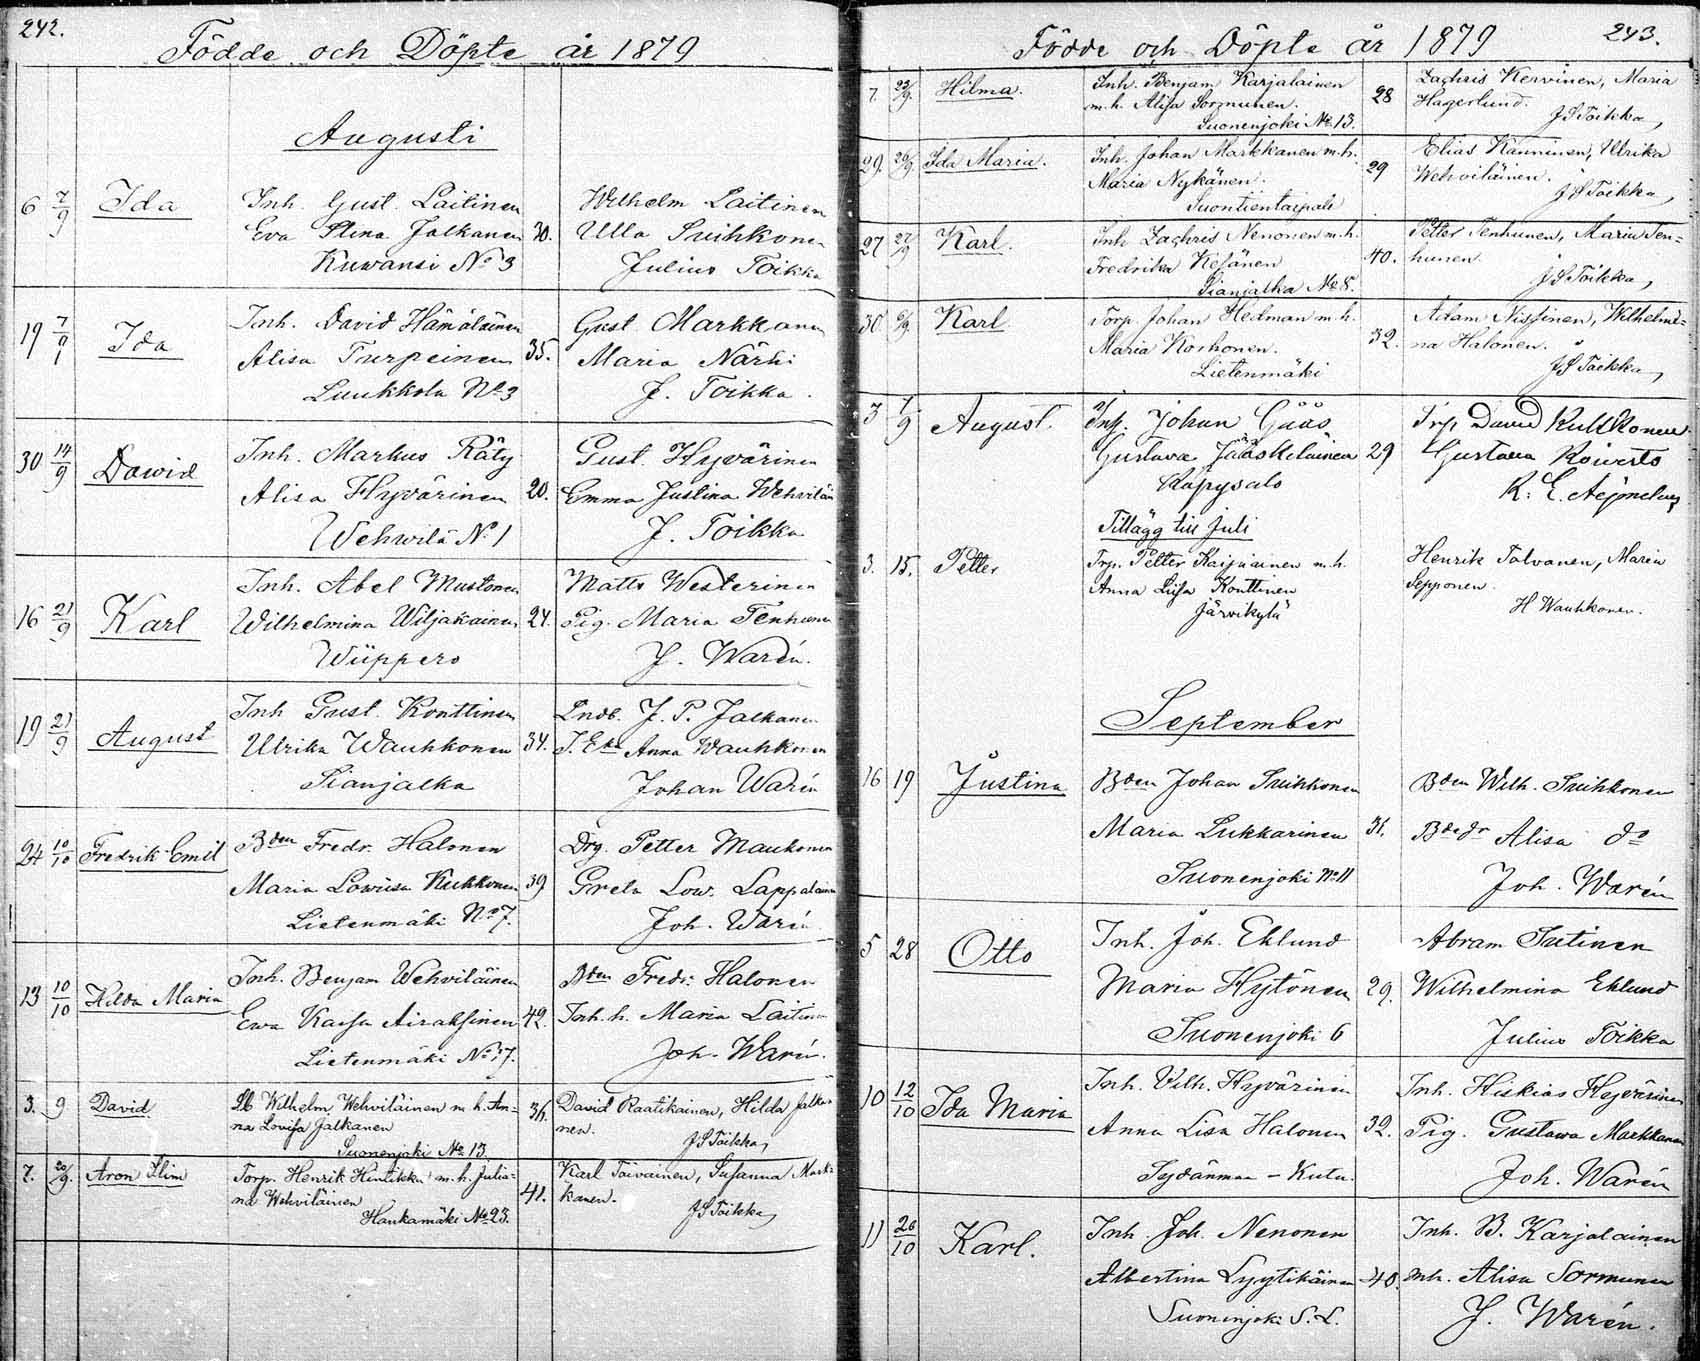 242.
Födde och Döpte år 1879
Augusti
6 7/9 Ida
Inh. Gust. Laitinen
Eva Stina Jalkanen 30.
Kuwansi No 3
Wilhelm Laitinen
Ulla Suihkonen
Julius Toikka
19 7/9 Ida
Inh. David Hämäläinen
Alisa Turpeinen 35.
Luukkola No 3
Gust Markkanen
Maria Närhi
J. Toikka.
30 14/9 Dawid
Inh. Markus Räty
Alisa Hyvärinen 20.
Wehwilä No 1
Gust. Hyvärinen
Emma Justina Wehvilän
J. Toikka
16 21/9 Karl
Inh. Abel Mustonen
Wilhelmina Wiljakainen 24.
Wüppero
Matts Westerinen
Pig. Maria Tenhunen
J. Warén.
19 21/9 August
Inh Gust. Konttinen
Ulrika Wauhkonen 34.
Sianjalka
Lndb. J. P. Jalkanen
Anna Wauhkonen
Johan Warén
24 10/10 Fredrik Emil
Bden Fredr. Halonen
Maria Lowisa Kukkonen 39
Lietenmäki No 7.
Drg. Petter Maukonen
Greta Low. Lappalainen
Joh. Warén
13 10/10 Hilda Maria
Inh. Benjam Wehviläinen
Ewa Kaisa Airaksinen 42.
Lietenmäki No 17.
Bden Fredr. Halonen
Inh. h. Maria Laitinen
Joh. Warén.
3. 9 David
Wilhelm Wehviläinen m. h. An=
na Lovisa Jalkanen 36.
Suonenjoki No 13.
David Raatikainen, Hilda Jalka=
nen.
J S Toikka,
7. 20/9. Aron Elim
Torp. Henrik Hintikka m. h. Julia=
na Wehviläinen 41.
Haukamäki No 23.
Karl Toivainen, Susanna Mark=
kanen.
J S Toikka,
Födde och Döpte år 1879 243.
7. 23/9. Hilma.
Inh. Benjam Karjalainen
m. h. Alisa Sormunen. 28
Suonenjoki No 13.
Zachris Kervinen, Maria
Hagerlund.
J S Toikka,
29. 26/9 Ida Maria.
Inh. Johan Markkanen m. h.
Maria Nykänen. 29
Suontientaipale
Elias Känninen, Ulrika
Wehviläinen.
J S Toikka,
27 27/9 Karl.
Inh Zachris Nenonen m. h.
Fredrika Kesänen 40.
Sianjalka No 8.
Petter Tenhunen, Maria Ten=
hunen.
J S Toikka,
30. Karl
Torp. Johan Hedman m. h.
Maria Korhonen. 32.
Lietenmäki
Adam Nissinen, Wilhelmi=
na Halonen.
J S Toikka,
3 7/9 August.
Inh. Johan Gåås
Gustava Jääskeläinen 29
Käpysalo
Trp David Kukkonen
Gustava
K. E. Aejmelaeus
Tillägg till Juli
3. 15. Petter
Trp. Petter Kaipiainen m. h.
Anna Lisa Konttinen
Järvikylä
Henrik Tolvanen, Maria
Sepponen.
H Wauhkonen.
September
16 19 Justina
Bden Johan Suihkonen
Maria Lukkarinen 31.
Suonenjoki No 11
Bden Wilh. Suihkonen
Bdedr Alisa do
Joh. Warén
5 28 Otto
Inh. Joh. Eklund
Maria Hytönen 29.
Suonenjoki 6
Abram Sutinen
Wilhelmina Eklund
Julius Toikka
10 12/10 Ida Maria
Inh. Vilh. Hyvärinen
Anna Lisa Halonen 32.
Sydänmaa - Kutu.
Inh. Hiskias Hyvärinen
Pig. Gustawa Markkanen
Joh. Warén
11 26/10 Karl.
Inh. Joh. Nenonen
Albertina Lyytikäinen 40.
Suoninjoki S. L.
Inh. B. Karjalainen
Inh. Alisa Sormunen
J. Warén.